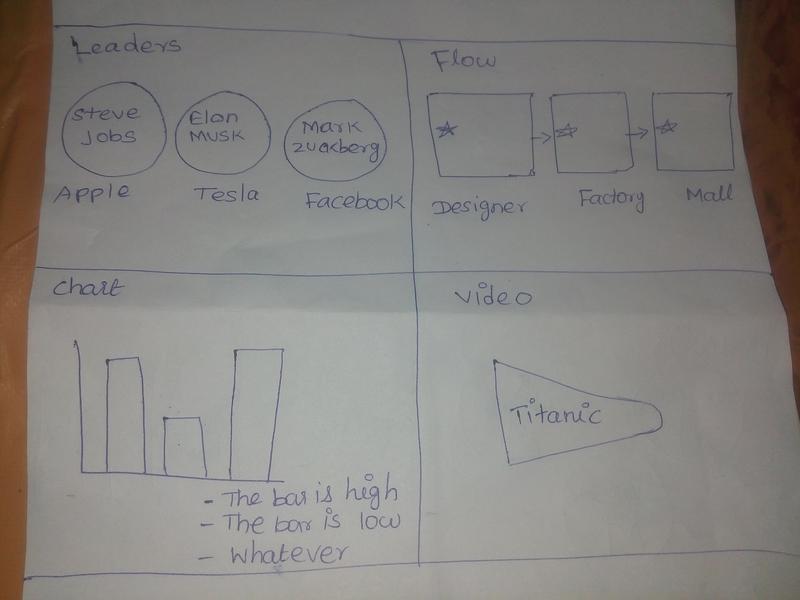 Leaders
Steve
Jobs
Elon
MUSK
Mark
zuckberg
Apple
Tesla
Facebook
Flow
Designer
Factory
Mall
Chart
- The bar is high
- The bar is low
- whatever
Video
Titanic